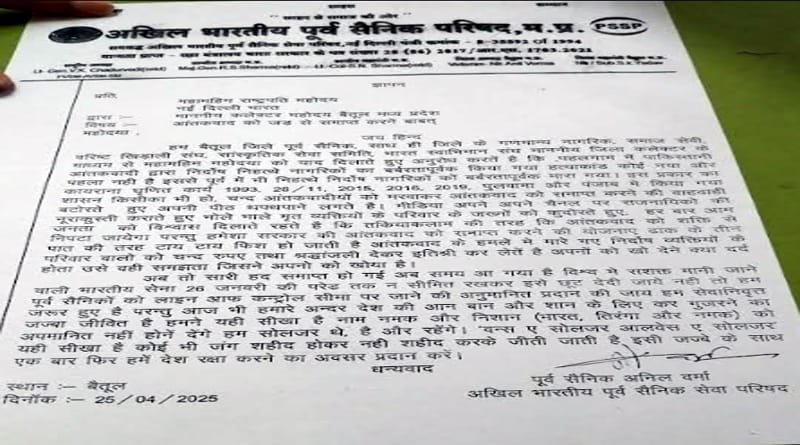 " साहस से समाज की ओर "
अखिल भारतीय पूर्व सैनिक परिषद, म.प्र.
PSSP
सम्बद्ध अखिल भारतीय पूर्व सैनिक सेवा परिषद, नई दिल्ली
Lt.Gen.V.K. Chaturvedi(retd) Maj.Gen.R.S.Sharma(retd) Lt-Col.S.N.
ज्ञापन
प्रति,
महामहिम राष्ट्रपति महोदय
नई दिल्ली भारत
द्वारा :- माननीय कलेक्टर महोदय बैतूल मध्य प्रदेश
विषय :- आंतकवाद को जड़ से समाप्त करने बाबत्
महोदया,
जय हिन्द
हम बैतूल जिले पूर्व सैनिक, साथ ही जिले के गणमान्य नागरिक, समाज सेवी,
वरिष्ट खिलाड़ी संघ, सांस्कृतिक सेवा समिति, भारत स्वाभिमान संघ माननीय जिला कलेक्टर के
माध्यम से महामहिम महोदया को याद दिलाते हुए अनुरोध करतें है कि पहलगाम में पाकिस्तानी
आंतकवादी द्वारा निर्दोष निहत्थे नागरिकों का बर्बरतापूर्वक किया गया हत्याकांड कोई नया और
पहला नही है इससे पूर्व में भी निहत्थे निर्दोष नागरिकों को बर्बरतापूर्वक मारा गया। इस प्रकार का
कायराना घृणित कार्य 1993, 26/11, 2015, 2016, 2019, पुलवामा और पंजाब में किया गया
शासन किसीका भी हो, चन्द आंतकवादीयों को मरवाकर आंतकवाद को समाप्त करने की वाहवाही
बटोरते हुए अपनी पीठ थपथपाने लगते है। मीडिया अपने अपने चैनल पर राजनायिकों की
नूराकुस्ती कराते हुए भोले भाले मृत व्यक्तियों के परिवार के जख्मों को कुरेदते हुए, हर बार आम
जनता को विश्वास दिलाते रहते है कि तकियाकलाम की तरह कि आंतकवाद को शक्ति से
निपटा जायेगा परन्तु हमेशा सरकार की आंतकवाद को समाप्त करने की योजनाए ढाक के तीन
पात की तरह टाय टाय फिश हो जाती है आंतकवाद के हमले में मारे गए निर्दोष व्यक्तियों के
परिवार वालो को चन्द रुपए तथा श्रध्दांजली देकर इतिश्री कर लेतें है अपनों को खो देने क्या दर्द
होता उसे वही समझता जिसने अपनो को खोया है।
अब तो सारी हद समाप्त हो गई अब समय आ गया है विश्व में सशक्त मानी जाने
वाली भारतीय सेना 26 जनवरी की परेड तक न सीमित रखकर इसे छूट देदी जाये नही तो हम
पूर्व सैनिकों को लाइन आफ कन्ट्रोल सीमा पर जाने की अनुमानित प्रदान की जाय हम सेवानिवृत्त
जरूर हुए है परन्तु आज भी हमारे अन्दर देश की आन बान और शान के लिए कर गुजरने का
जज्बा जीवित है हमने यही सीखा है नाम नमक और निशान (भारत, तिरंगा और नमक) को
अपमानित नहीं होनें देंगे हम सोलजर थे, है और रहेंगे। "वन्स ए सोलजर आलवेस ए सोलजर"
यही सीखा है कोई भी जंग शहीद होकर नही शहीद करके जीती जाती है इसी जज्बे के साथ
एक बार फिर हमें देश रक्षा करने का अवसर प्रदान करें।
धन्यवाद
स्थान :- बैतूल
दिनॉक :- 25/04/2025
पूर्व सैनिक अनिल वर्मा
अखिल भारतीय पूर्व सैनिक सेवा परिषद